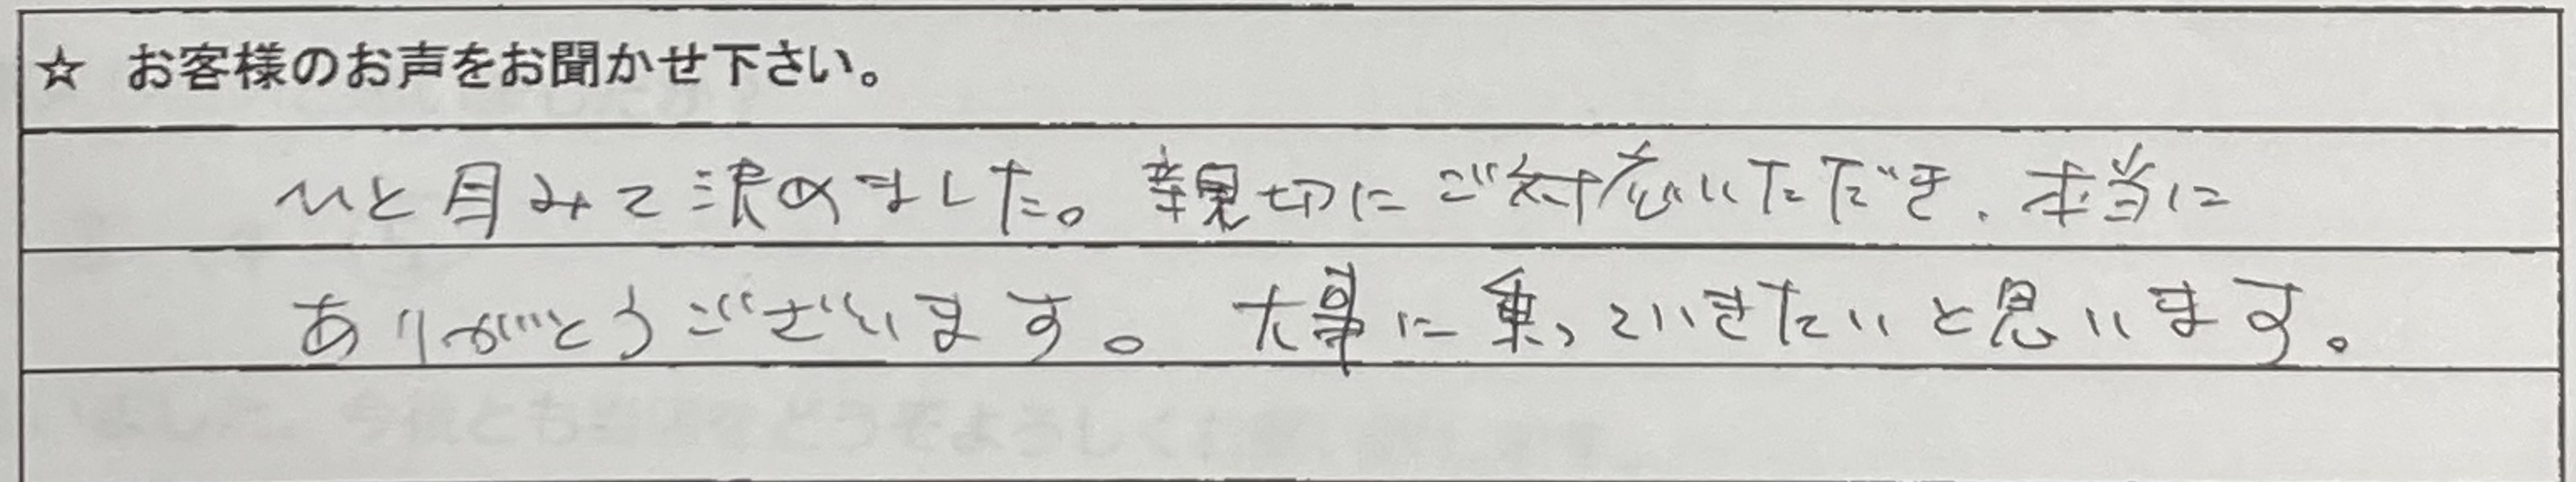 ☆ お客様のお声をお聞かせ下さい。
ひと目みて決めました。親切にご対応いただき、本当に
ありがとうございます。大事に乗っていきたいと思います。